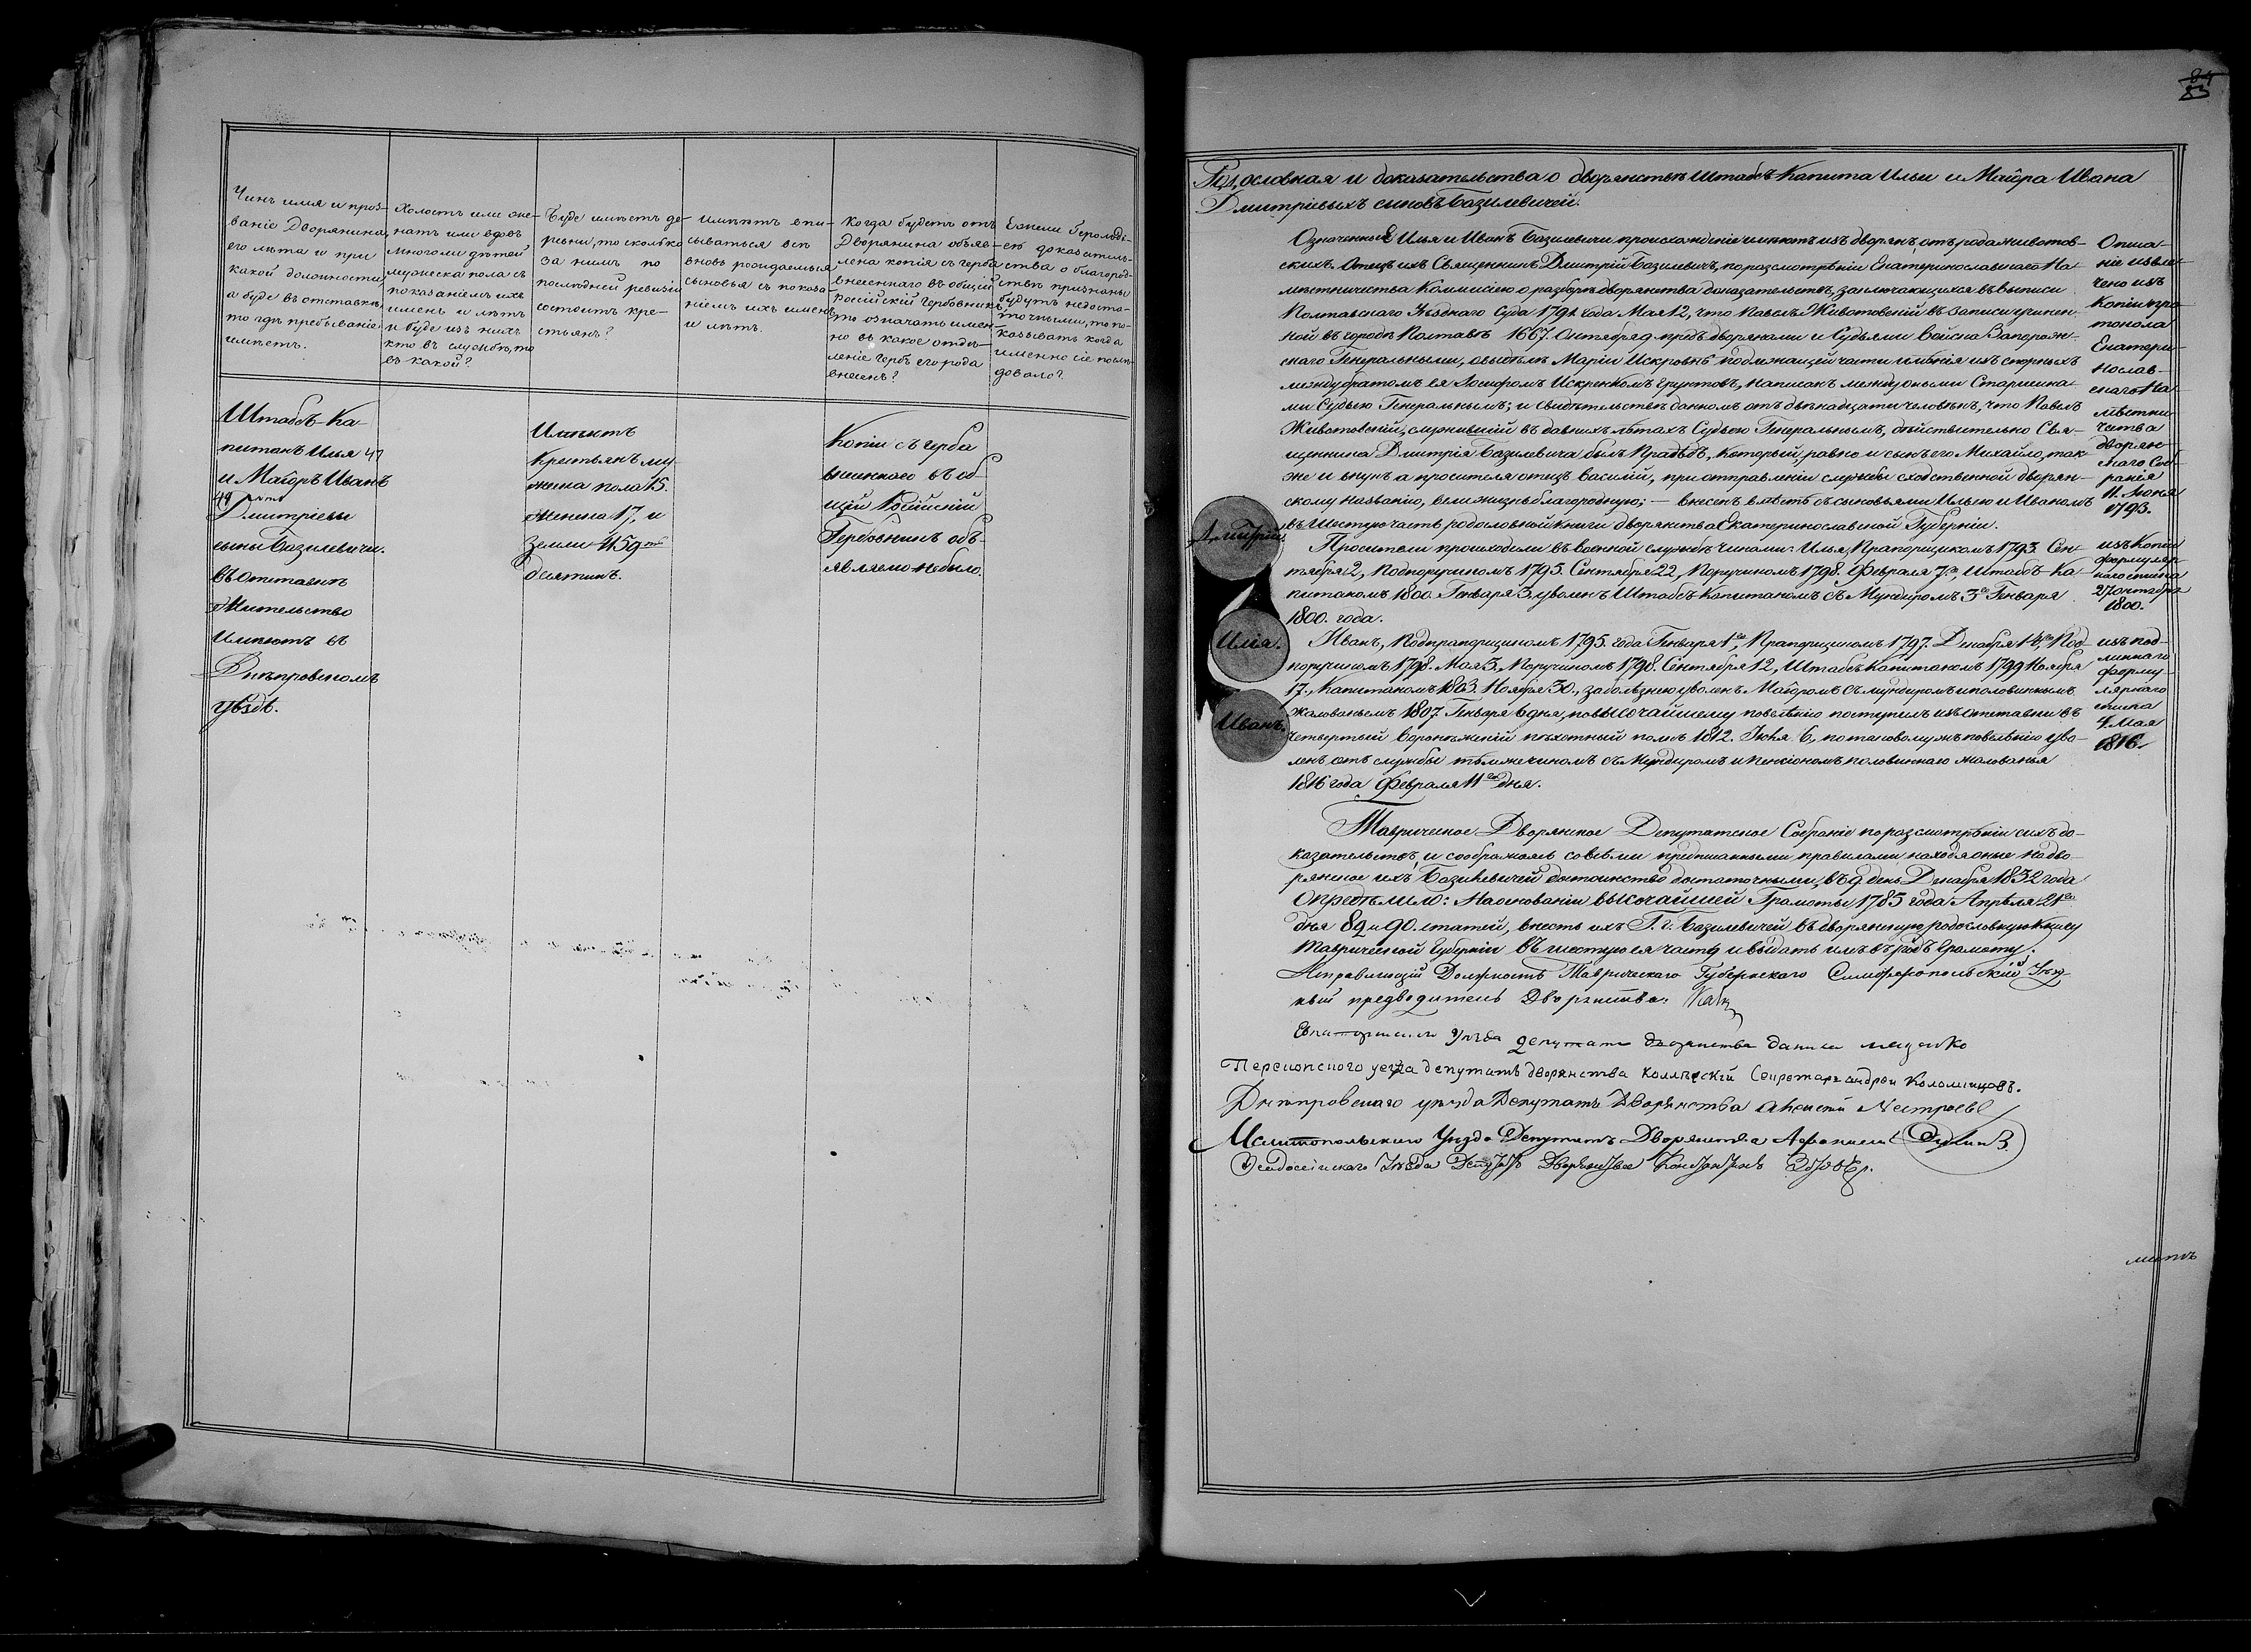 Чинъ имя и проз-
ваніе Дворянина,
его лѣта и при
какой должности,
а буде въ отставкѣ,
то гдѣ пребываніе
имѣетъ.
Холостъ или же-
натъ или вдовъ
многоли дѣтей
мужеска пола съ
показаніемъ ихъ
именъ и лѣтъ
и буде изъ нихъ
кто въ службѣ, то
въ какой?
Буде имѣетъ де-
ревни, то сколько
за нимъ по
последней ревизіи
состоитъ кре-
стьянъ?
имѣютъ впи-
сываться всѣ
вновь рождаемыя
сыновья съ показа-
ніемъ ихъ именъ
и лѣтъ.
Когда будетъ отъ
Дворянина объяв-
лена копія съ герба
внесеннаго въ общій
Россійскій Гербовникъ,
то означать имен-
но въ какое отдѣ-
леніе гербъ его рода
внесенъ?
Ежели Герольді-
ею доказатель-
ства о благород-
ствѣ признаны
будутъ недоста-
точными, то по-
казывать когда
именно сіе послѣ-
довало?
Штабсъ-Ка-
питанъ Илья 47
и Маіоръ Иванъ
44 лѣтъ
Дмитріевы
сыны Базилевичи.
въ отставкѣ
жительство
имѣютъ въ
Днѣпровскомъ
уѣздѣ.
Имѣютъ
крестьянъ му-
жеска пола 15.
женска 17, и
земли 1159
десятинъ.
Копіи съ герба
внесеннаго въ об-
щій Россійскій
Гербовникъ объ-
являемо небыло.
84
83
Родословная и доказательства о дворянствѣ Штабсъ Капитана Ильи и Маіора Ивана
Дмитріевыхъ сыновъ Базилевичей.
Дмитрій.
Илья.
Иванъ.
Означенные Илья и Иванъ Базилевичи происхожденіе имѣютъ изъ дворянъ, отъ рода животов-
скихъ. Отецъ ихъ Священникъ Дмитрій Базилевичъ, по разсмотрѣніи Екатеринославскаго На-
мѣстничества Коммисіею о разборѣ дворянства доказательствъ, заключающихся въ выписи
Полтавскаго Уѣзднаго Суда 1791 года Мая 12, что Павелъ Животовскій въ записи учинен-
ной въ городѣ Полтавѣ 1667. Октября 9 предъ дворянами и Судьями Войска Запорож-
скаго Генеральными, овыдѣлѣ Маріи Искровнѣ подлежащей части имѣнія изъ спорныхъ
между братомъ ея Іосифомъ Искренкомъ грунтовъ, написанъ между оными Старшина-
ми Судьею Генеральнымъ; и свидѣтельствѣ данномъ отъ двѣнадцати человѣкъ, что Павелъ
Животовскій, служившій въ давнихъ лѣтахъ Судьею Генеральнымъ, дѣйствительно Свя-
щенника Дмитрія Базилевича былъ Прадѣдъ, который, равно и сынъ его Михайло, так-
же и внукъ а просителя отецъ Василій, при отправленіи службы сходственной дворян-
скому названію, вели жизнь благородную; — внесенъ вмѣстѣ съ сыновьями Ильею и Иваномъ
въ Шестую часть родословной книги дворянства Екатеринославской Губерніи.
Просители происходили въ военной службѣ чинами: Илья, Прапорщикомъ 1793. Сен-
тября 2, Подпоручикомъ 1795. Сентября 22, Поручикомъ 1798. Февраля 7го, Штабсъ-Ка-
питаномъ 1800. Генваря 3, уволенъ Штабсъ-Капитаномъ съ Мундиромъ 3го Генваря
1800. года.
Иванъ, Подпрапорщикомъ 1795. года Генваря 1го, Прапорщикомъ 1797. Декабря 14го, Под-
поручикомъ 1798. Мая 3, Поручикомъ 1798. Сентября 12, Штабсъ Капитаномъ 1799 Ноября
17., Капитаномъ 1803. Ноября 30., заболѣзнею уволенъ Маіоромъ съ мундиромъ и половиннымъ
жалованьемъ 1807. Генваря 6 дня, по высочайшему повелѣнію поступилъ изъ отставки въ
четвертый Воронежскій пѣхотный полкъ 1812. Іюня 6., по таковомужъ повелѣнію уво-
ленъ отъ службы тѣмже чиномъ съ Мундиромъ и пенсіономъ половиннаго жалованья
1816 года Февраля 11го дня.
Таврическое Дворянское Депутатское Собраніе по разсмотрѣніи сихъ до-
казательствъ, и соображаясь совсѣми предписанными правилами находя оные на дво-
рянское ихъ Базилевичей достоинство достаточными, въ 9 день Декабря 1832 года
Опредѣлило: На основаніи высочайшей Грамоты 1785 года Апрѣля 21го
дня 89 и 90. статей, внесть ихъ Г. г. Базилевичей въ дворянскую родословную книгу
Таврической Губерніи въ шестую ея часть и выдать имъ въ родъ Грамоту.
Исправляющій Должность Таврическаго Губернского Симферопольскій Уѣзд-
ный предводитель Дворянства.
Евпаторійскаго Уѣзда депутатъ дворянства Данила
Перекопского уезда депутатъ дворянства коллежскій Секретарь Андрей Коломійцовъ.
Днѣпровскаго уѣзда Депутатъ Дворянства Алексѣй Нестроевъ
Мелитопольскаго Уѣзда Депутатъ Дворянства Афанасій
Ѳеодосійскаго Уѣзда Депутатъ Дворянства Константинъ
Описа-
ніе извле-
чено изъ
копіи про-
токола
Екатери-
нослав-
скаго На-
мѣстни-
чества
дворян-
скаго Соб-
ранія
11. Іюня
1793.
изъ копіи
формуляр-
наго списка
27 октября
1800.
изъ под-
линнаго
форму-
лярнаго
списка
4 Мая
1816.